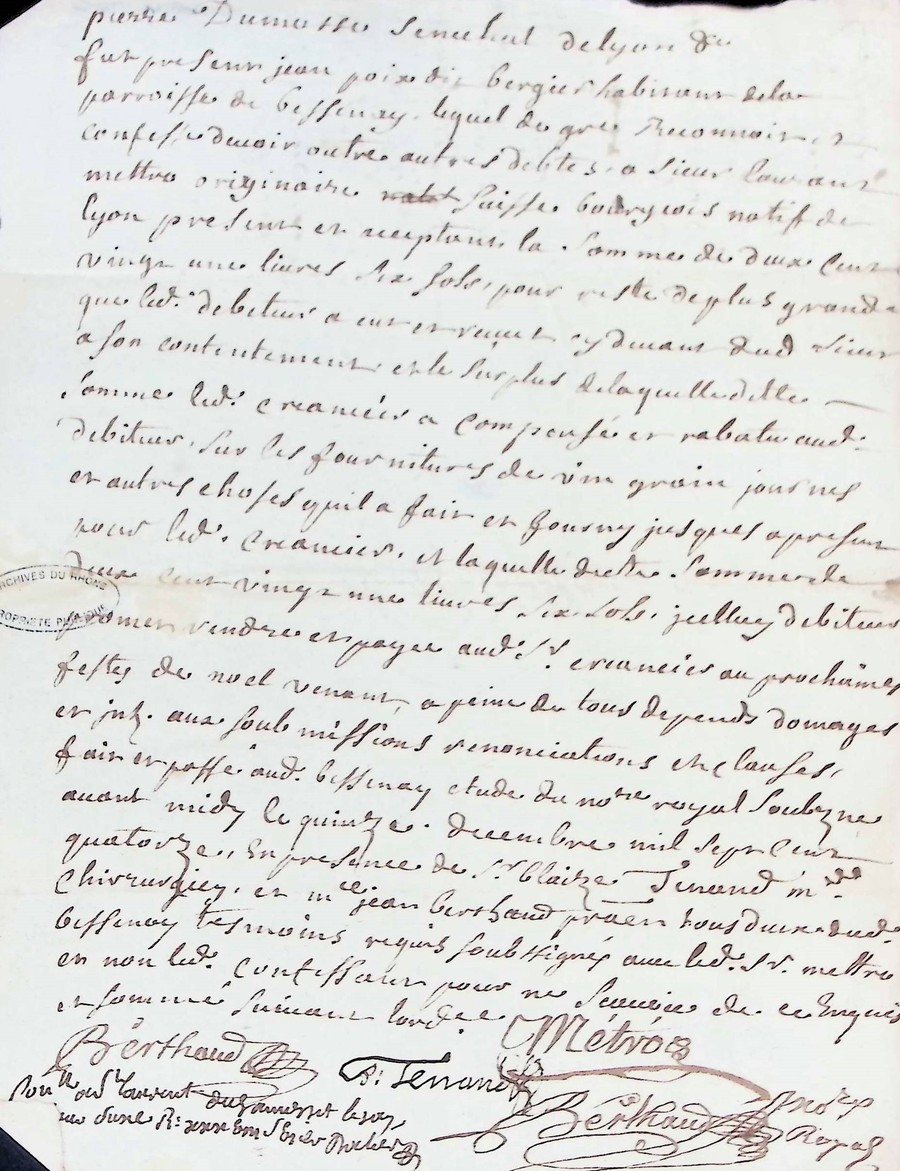 pierre Dumasse Senechal delyon &c
fut present jean poix dit bergier habitant dela
parroisse de bessenay, lequel de gre Reconnoit et
confesse devoir outre autres debtes, a sieur laurant
mettro originaire suisse bourgeois natif de
lyon present et acceptant la somme de deux cent
vingt une livres six sols, pour reste de plus grande
que led. debiteur a eut et receut cy devant dud sieur
a son contentement, et le surplus delaquelle ditte
somme led. creancier a compensé et rabatu aud.
debiteur, sur les fournitures de vin grain journes
et autres choses quil a fait et fourny jusques apresent
pour led. creancier, et laquelle ditte somme de
deux cent vingt une livres six sols, jcelluy debiteur
promet rendre et payer aud. Sr. creancier au prochaines
festes de noel venant, a peine de tous depends domages
et jnt. aux soubmissions renonciations et clauses,
fait et passé aud. bessenay etude du nore royal soubzne
avant midy le quinze decembre mil sept cent
quatorze, en presence de Sr. blaize Tenand me
chirurgien, et me jean berthaud praen tous deux dud.
bessenay tesmoins requis soubssignés avec led. Sr. mettro
et non led. confessant pour ne scavoir de ce enquis
et sommé suivant lord.ce Métro
Berthaud B. Tenand
Berthaud nore Royal
ARCHIVES DU RHÔNE
PROPRIÉTÉ PUBLIQUE